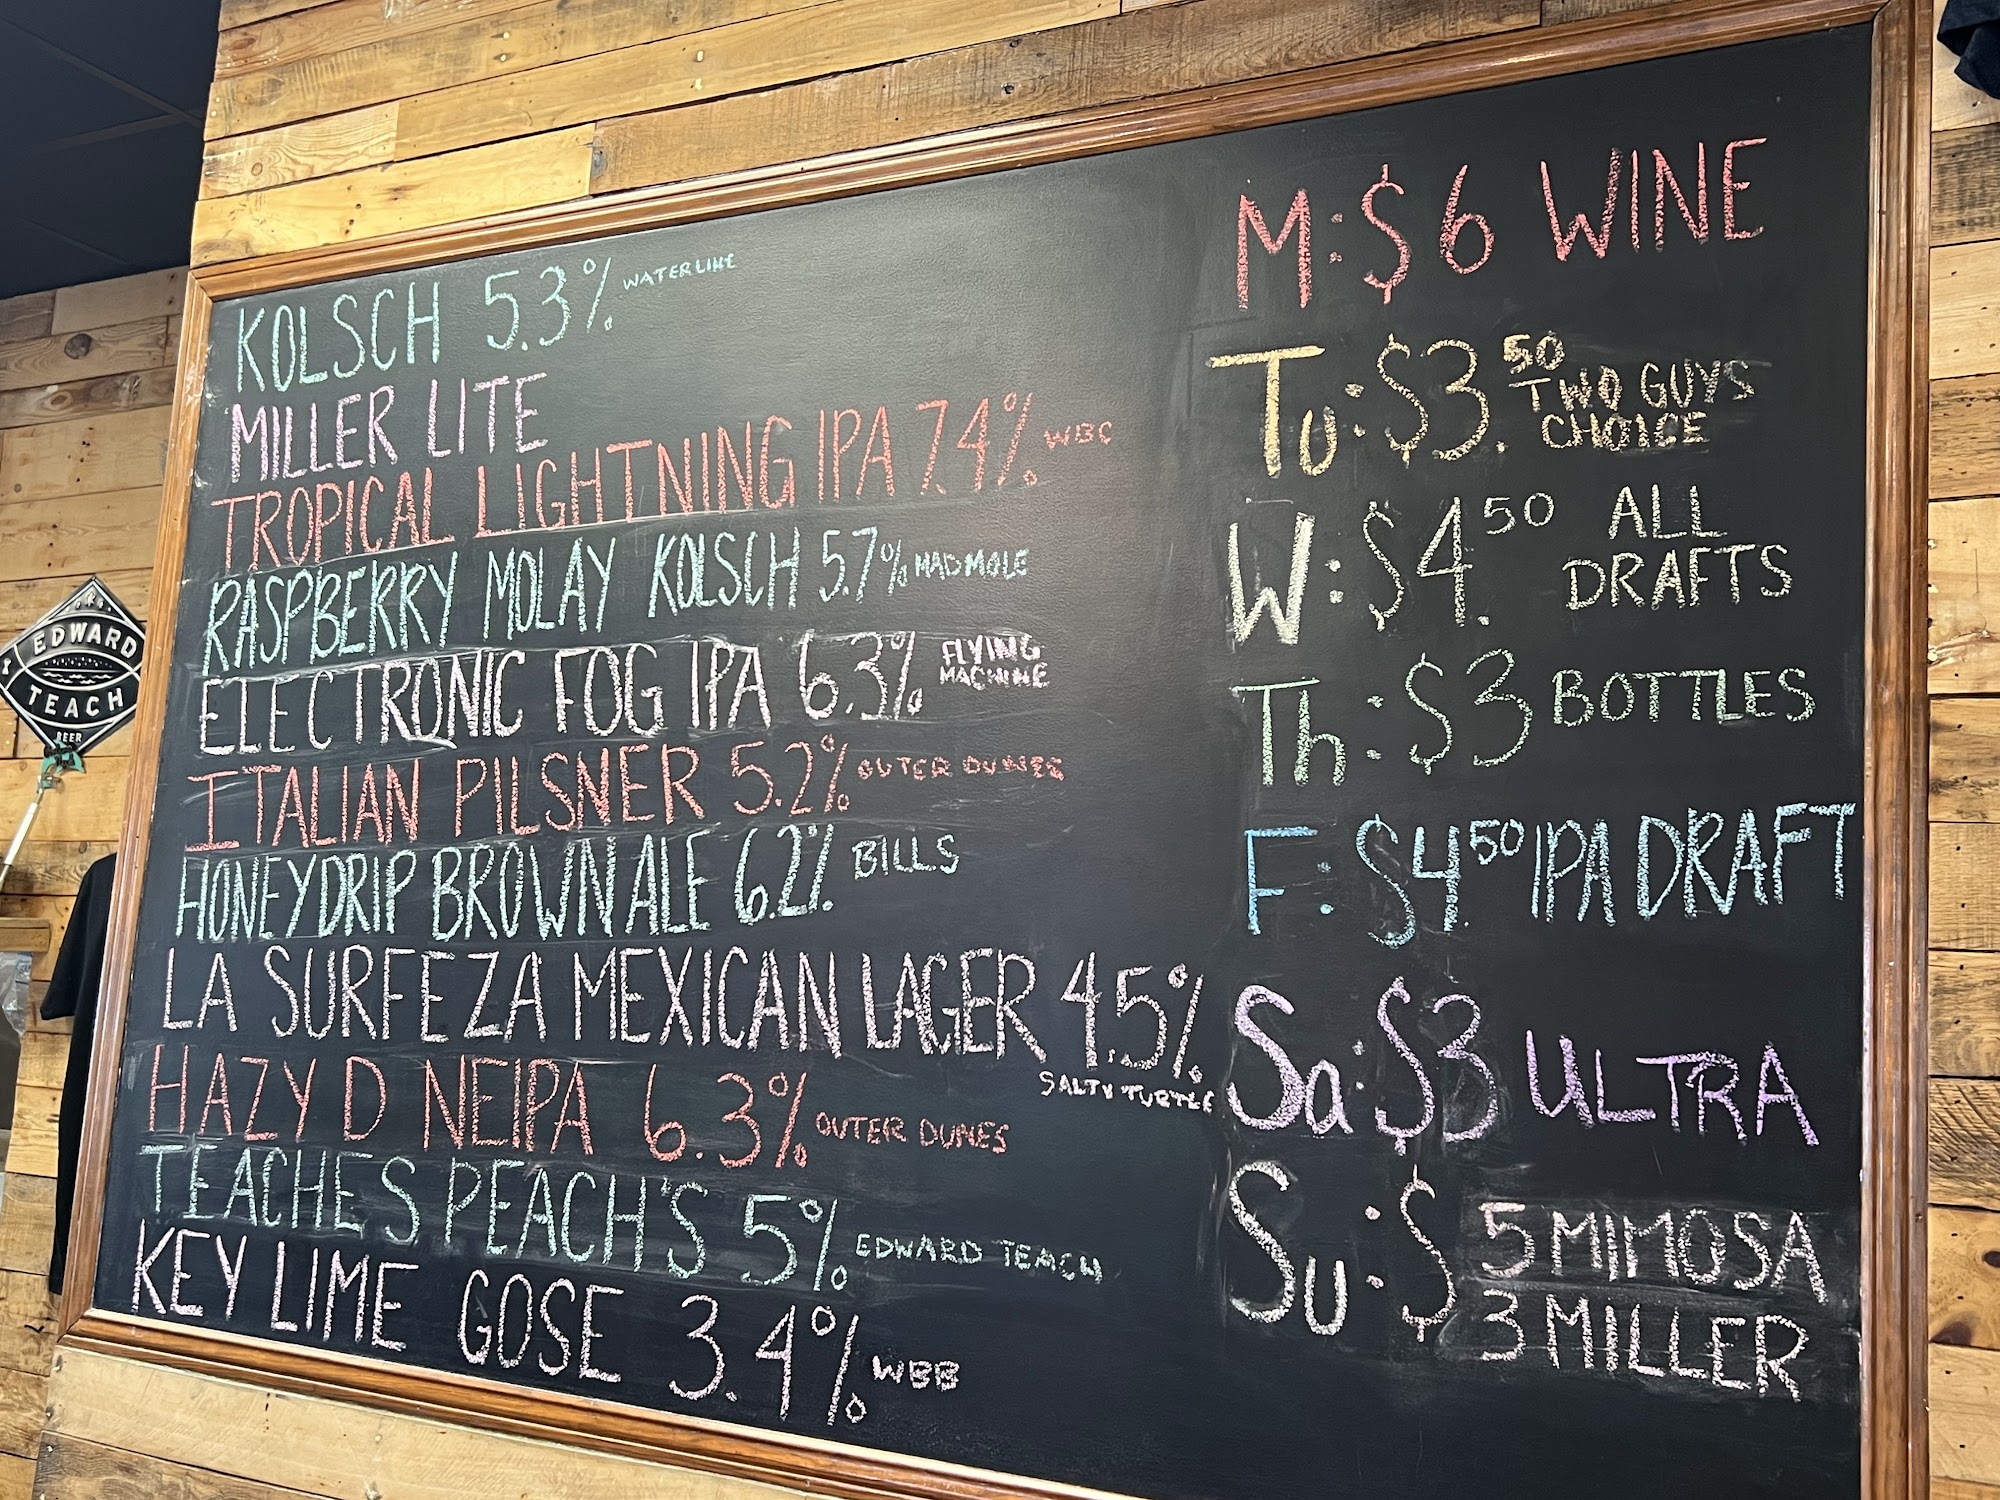 KOLSCH 5.3% WATERLINE
MILLER LITE
TROPICAL LIGHTNING IPA 7.4% WBC
RASPBERRY MOLAY KOLSCH 5.7% MAD MOLE
ELECTRONIC FOG IPA 6.3% FLYING
MACHINE
ITALIAN PILSNER 5.2% OUTER DUNES
HONEYDRIP BROWN ALE 6.2% BILLS
LA SURFEZA MEXICAN LAGER 4.5%
SALTY TURTLE
HAZY D NEIPA 6.3% OUTER DUNES
TEACHES PEACH'S 5% EDWARD TEACH
KEY LIME GOSE 3.4% WBB
M: $6 WINE
Tu: $3.50 TWO GUYS
CHOICE
W: $4.50 ALL
DRAFTS
Th: $3 BOTTLES
F: $4.50 IPA DRAFT
Sa: $3 ULTRA
Su: $ 5 MIMOSA
3 MILLER
EDWARD
TEACH
BEER